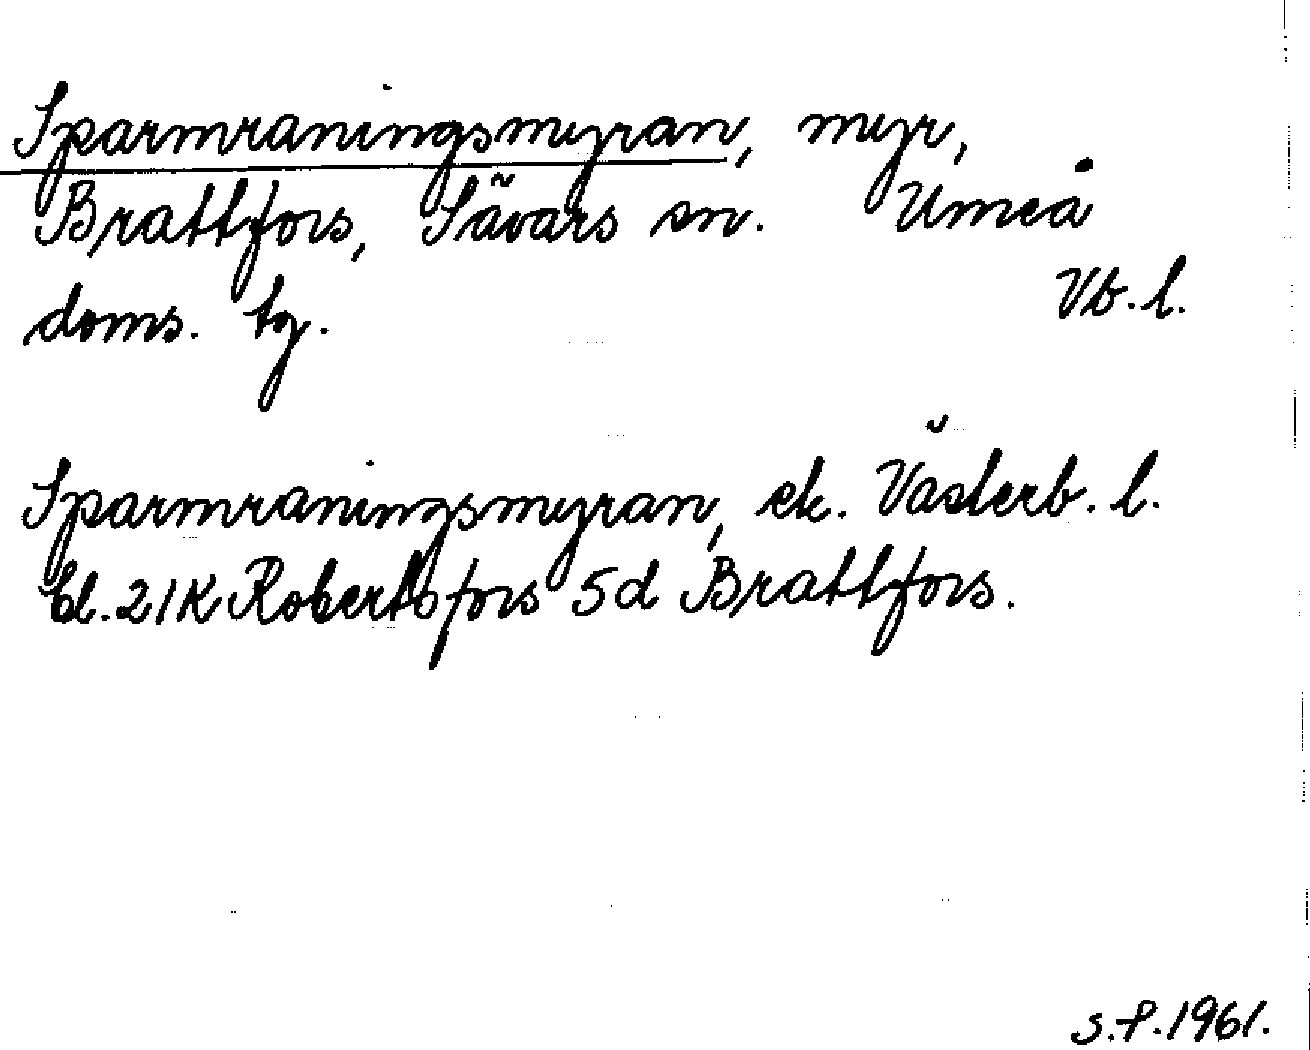 Sparmraningsmyran, myr,
Brattfors, Sävars sn. Umeå
doms. tg. Vb. l.
Sparmraningsmyran, ek. Västerb. l.
bl. 21K Robertsfors 5d Brattfors.
S.P. 1961.